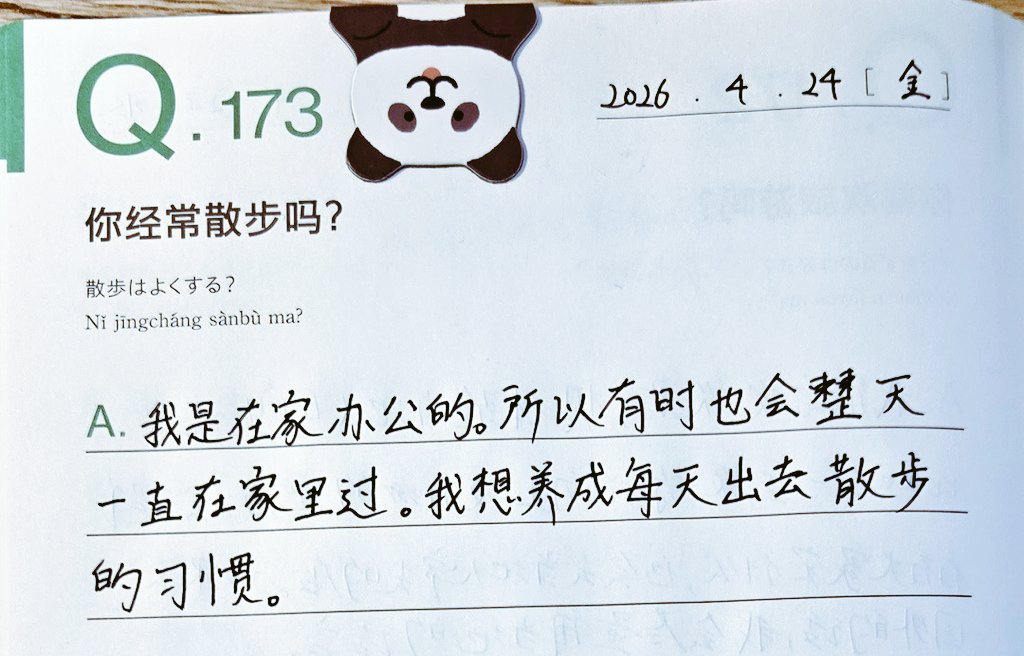 Q.173
2026.4.24[金]
你经常散步吗?
散歩はよくする?
Nǐ jīngcháng sànbù ma?
A. 我是在家办公的。所以有时也会整天
一直在家里过。我想养成每天出去散步
的习惯。